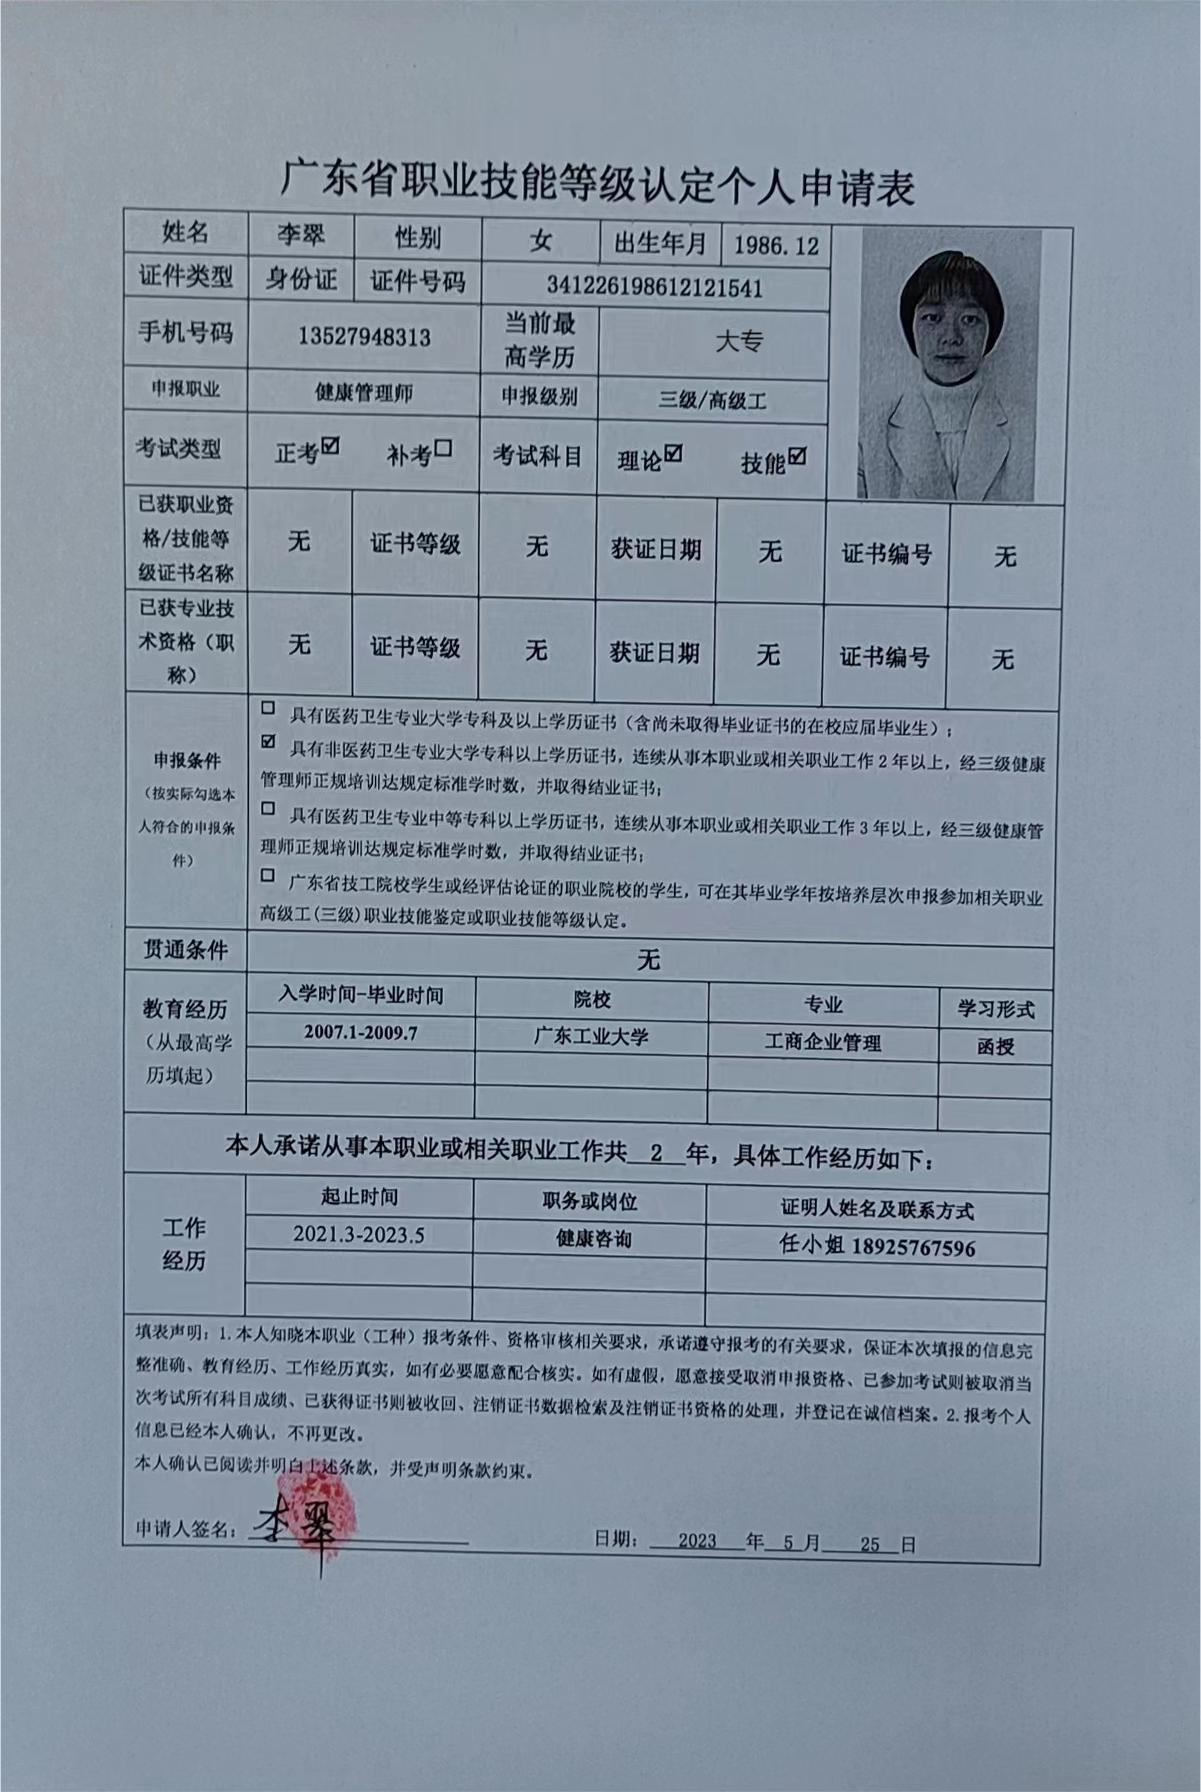 广东省职业技能等级认定个人申请表
姓名 李翠 性别 女 出生年月 1986.12
证件类型 身份证 证件号码 341226198612121541
手机号码 13527948313 当前最高学历 大专
申报职业 健康管理师 申报级别 三级/高级工
考试类型 正考☑ 补考☐ 考试科目 理论☑ 技能☑
已获职业资格/技能等级证书名称 无 证书等级 无 获证日期 无 证书编号 无
已获专业技术资格（职称） 无 证书等级 无 获证日期 无 证书编号 无
申报条件
（按实际勾选本人符合的申报条件）
☐ 具有医药卫生专业大学专科及以上学历证书（含尚未取得毕业证书的在校应届毕业生）；
☑ 具有非医药卫生专业大学专科以上学历证书，连续从事本职业或相关职业工作2年以上，经三级健康
管理师正规培训达规定标准学时数，并取得结业证书；
☐ 具有医药卫生专业中等专科以上学历证书，连续从事本职业或相关职业工作3年以上，经三级健康管
理师正规培训达规定标准学时数，并取得结业证书；
☐ 广东省技工院校学生或经评估论证的职业院校的学生，可在其毕业学年按培养层次申报参加相关职业
高级工(三级)职业技能鉴定或职业技能等级认定。
贯通条件 无
教育经历
（从最高学历填起）
入学时间-毕业时间 院校 专业 学习形式
2007.1-2009.7 广东工业大学 工商企业管理 函授
本人承诺从事本职业或相关职业工作共 2 年，具体工作经历如下：
工作
经历
起止时间 职务或岗位 证明人姓名及联系方式
2021.3-2023.5 健康咨询 任小姐 18925767596
填表声明：1.本人知晓本职业（工种）报考条件、资格审核相关要求，承诺遵守报考的有关要求，保证本次填报的信息完
整准确、教育经历、工作经历真实，如有必要愿意配合核实。如有虚假，愿意接受取消申报资格、已参加考试则被取消当
次考试所有科目成绩、已获得证书则被收回、注销证书数据检索及注销证书资格的处理，并登记在诚信档案。2.报考个人
信息已经本人确认，不再更改。
本人确认已阅读并明白上述条款，并受声明条款约束。
申请人签名：李翠 日期： 2023 年 5 月 25 日